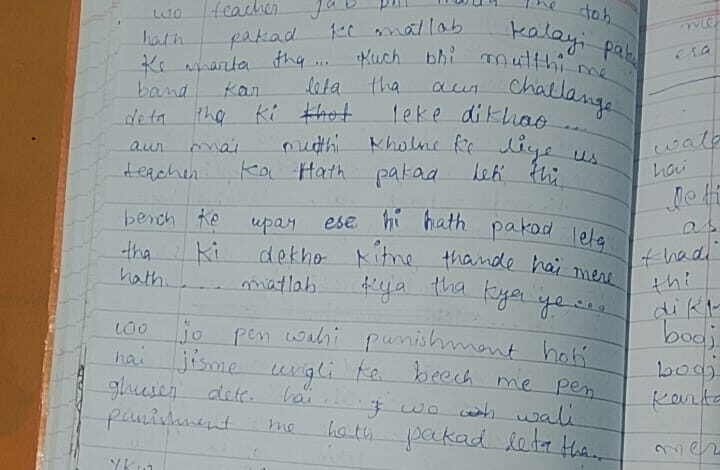 wo teacher jab bhi the toh
hath pakad ke matlab kalayi
ke marta tha... Kuch bhi mutthi me
band kar leta tha aur challange
deta tha ki thot leke dikhao...
aur mai mutthi kholne ke liye us
teacher ka Hath pakad leti thi
bench ke upar ese hi hath pakad leta
tha ki dekho kitne thande hai mere
hath.... matlab kya tha kya ye...
woo jo pen wahi punishment hoti
hai jisme ungli ke beech me pen
ghuser dete hai... wo wali
punishment me hath pakad leta tha..
esa
wala
hai
leti
as
thadi
thi